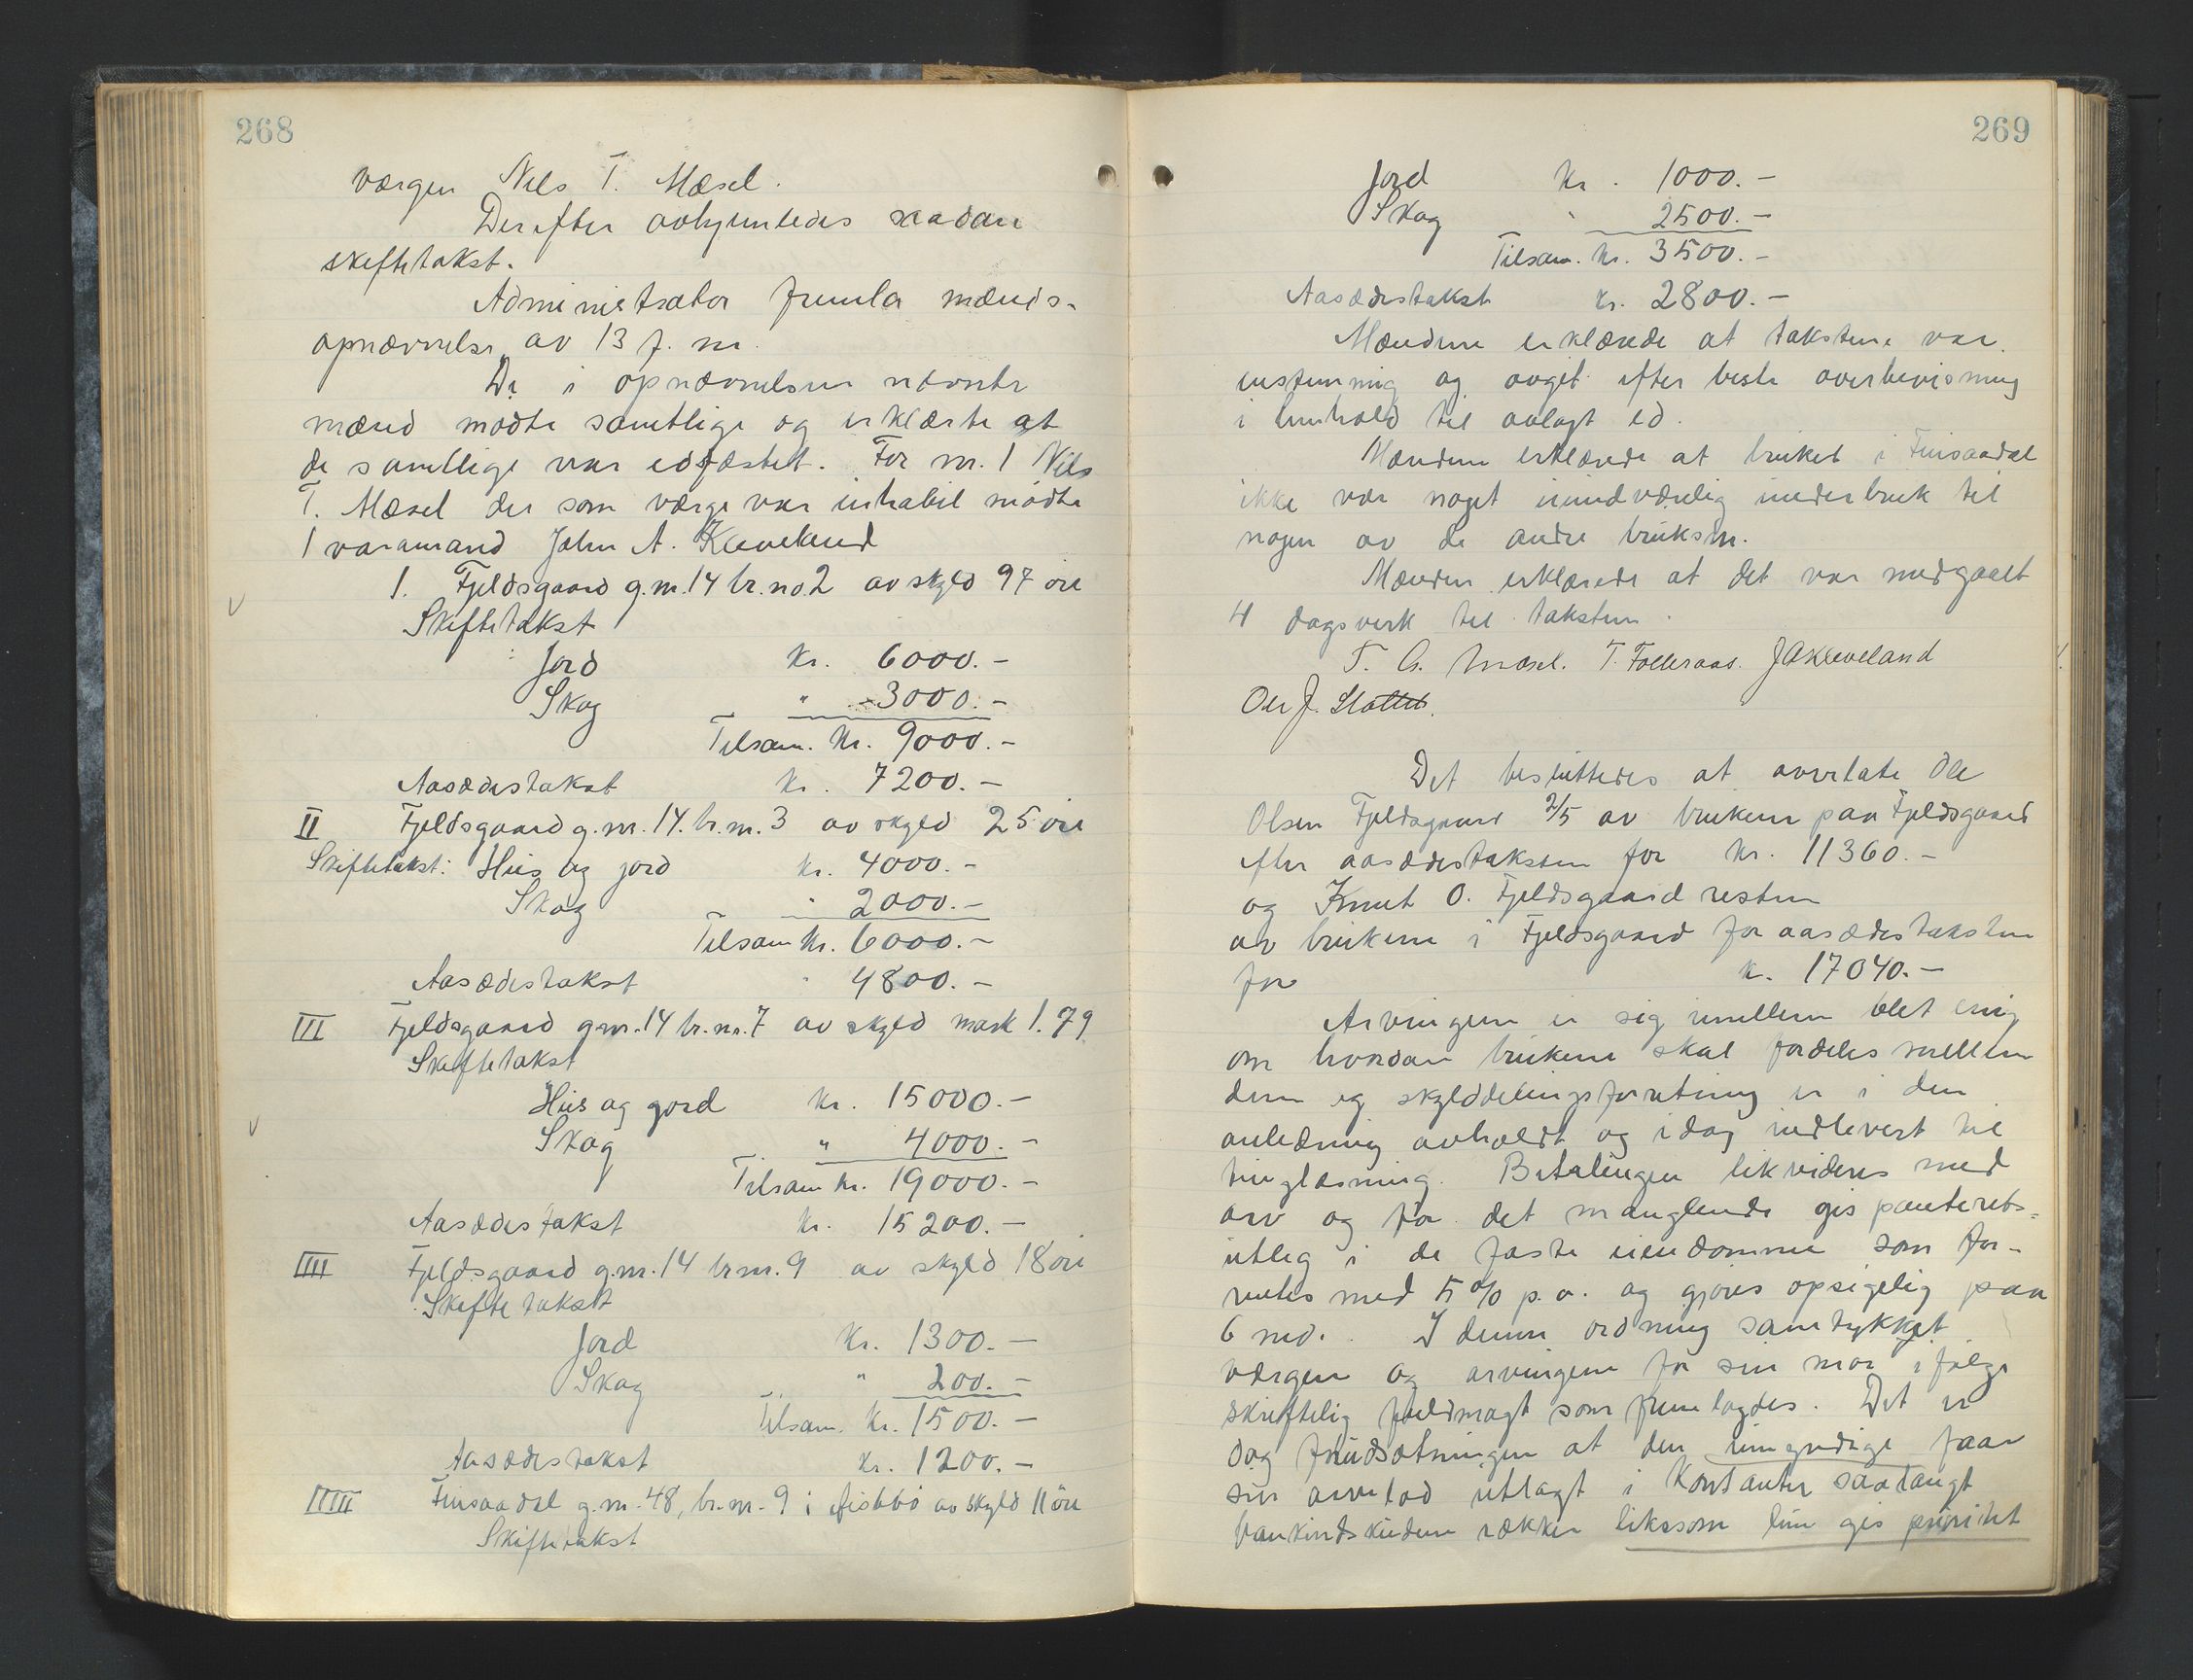 268
værgen Nils T. Mæsel.
Derefter avhjemledes saadan
skiftetakst.
Administrator fremla mænds-
opnævnelse av 13 f. m.
De i opnævnelsen nævnte
mænd mødte samtlige og erklærte at
de samtlige var edfæstet. For nr. 1 Nils
T. Mæsel der som værge var inhabil mødte
1 varamand John A. Kleveland
1. Fjeldsgaard g.nr. 14 br. no. 2 av skyld 97 øre
Skiftetakst
Jord kr. 6000.-
Skog " 3000.-
Tilsam. kr. 9000.-
Aasædestakst kr. 7200.-
II Fjeldsgaard g.nr. 14. br.nr. 3 av skyld 25 øre
Skiftetakst: Hus og jord kr. 4000.-
Skog " 2000.-
Tilsam kr. 6000.-
Aasædestakst " 4800.-
III Fjeldsgaard g.nr. 14 br. nr. 7 av skyld mark 1.79
Skiftetakst
Hus og jord kr. 15000.-
Skog " 4000.-
Tilsam kr. 19000.-
Aasædestakst kr. 15200.-
IIII Fjeldsgaard g.nr. 14 br.nr. 9 av skyld 18 øre
Skiftetakst
Jord kr. 1300.-
Skog " 200.-
Tilsam. kr. 1500.-
Aasædestakst kr. 1200.-
IIIII Finsaadal g.nr. 48, br.nr. 9 i av skyld 11 øre
Skiftetakst
269
Jord kr. 1000.-
Skog " 2500.-
Tilsam. kr. 3500.-
Aasædestakst kr. 2800.-
Mændene erklærede at takstene var
enstemmig og avgit efter beste overbevisning
i henhold til avlagt ed.
Mændene erklærede at bruket i Finsaadal
ikke var noget uundværlig underbruk til
nogen av de andre bruksnr.
Mændene erklærede at det var medgaaet
4 dagsverk til taksten.
T. G. Mæsel. T. Folleraas. J A Kleveland
Ole J.
Det besluttedes at overlate Ole
Olsen Fjeldsgaard 2/5 av brukene paa Fjeldsgaard
efter aasædestaksten for kr. 11360.-
og Knut O. Fjeldsgaard resten
av brukene i Fjeldsgaard for aasædestaksten
for kr. 17040.-
Arvingene er sig imellem blet enig
om hvordan brukene skal fordeles mellem
dem og skylddelingsforretning er i den
anledning avholdt og idag indlevert til
tinglæsning. Betalingen likvideres med
arv og for det manglende gis panterets-
utlæg i de faste eiendomme som for-
rentes med 5% p.a. og gjøres opsigelig paa
6 md. I denne ordning samtykket
værgen og arvingene for sin mor ifølge
skriftelig fuldmagt som fremlagdes. Det er
dog forudsætningen at den umyndige faar
sin arvelod utlagt i kontanter saalangt
bankindskudene rækker likesom hun gis prioritet